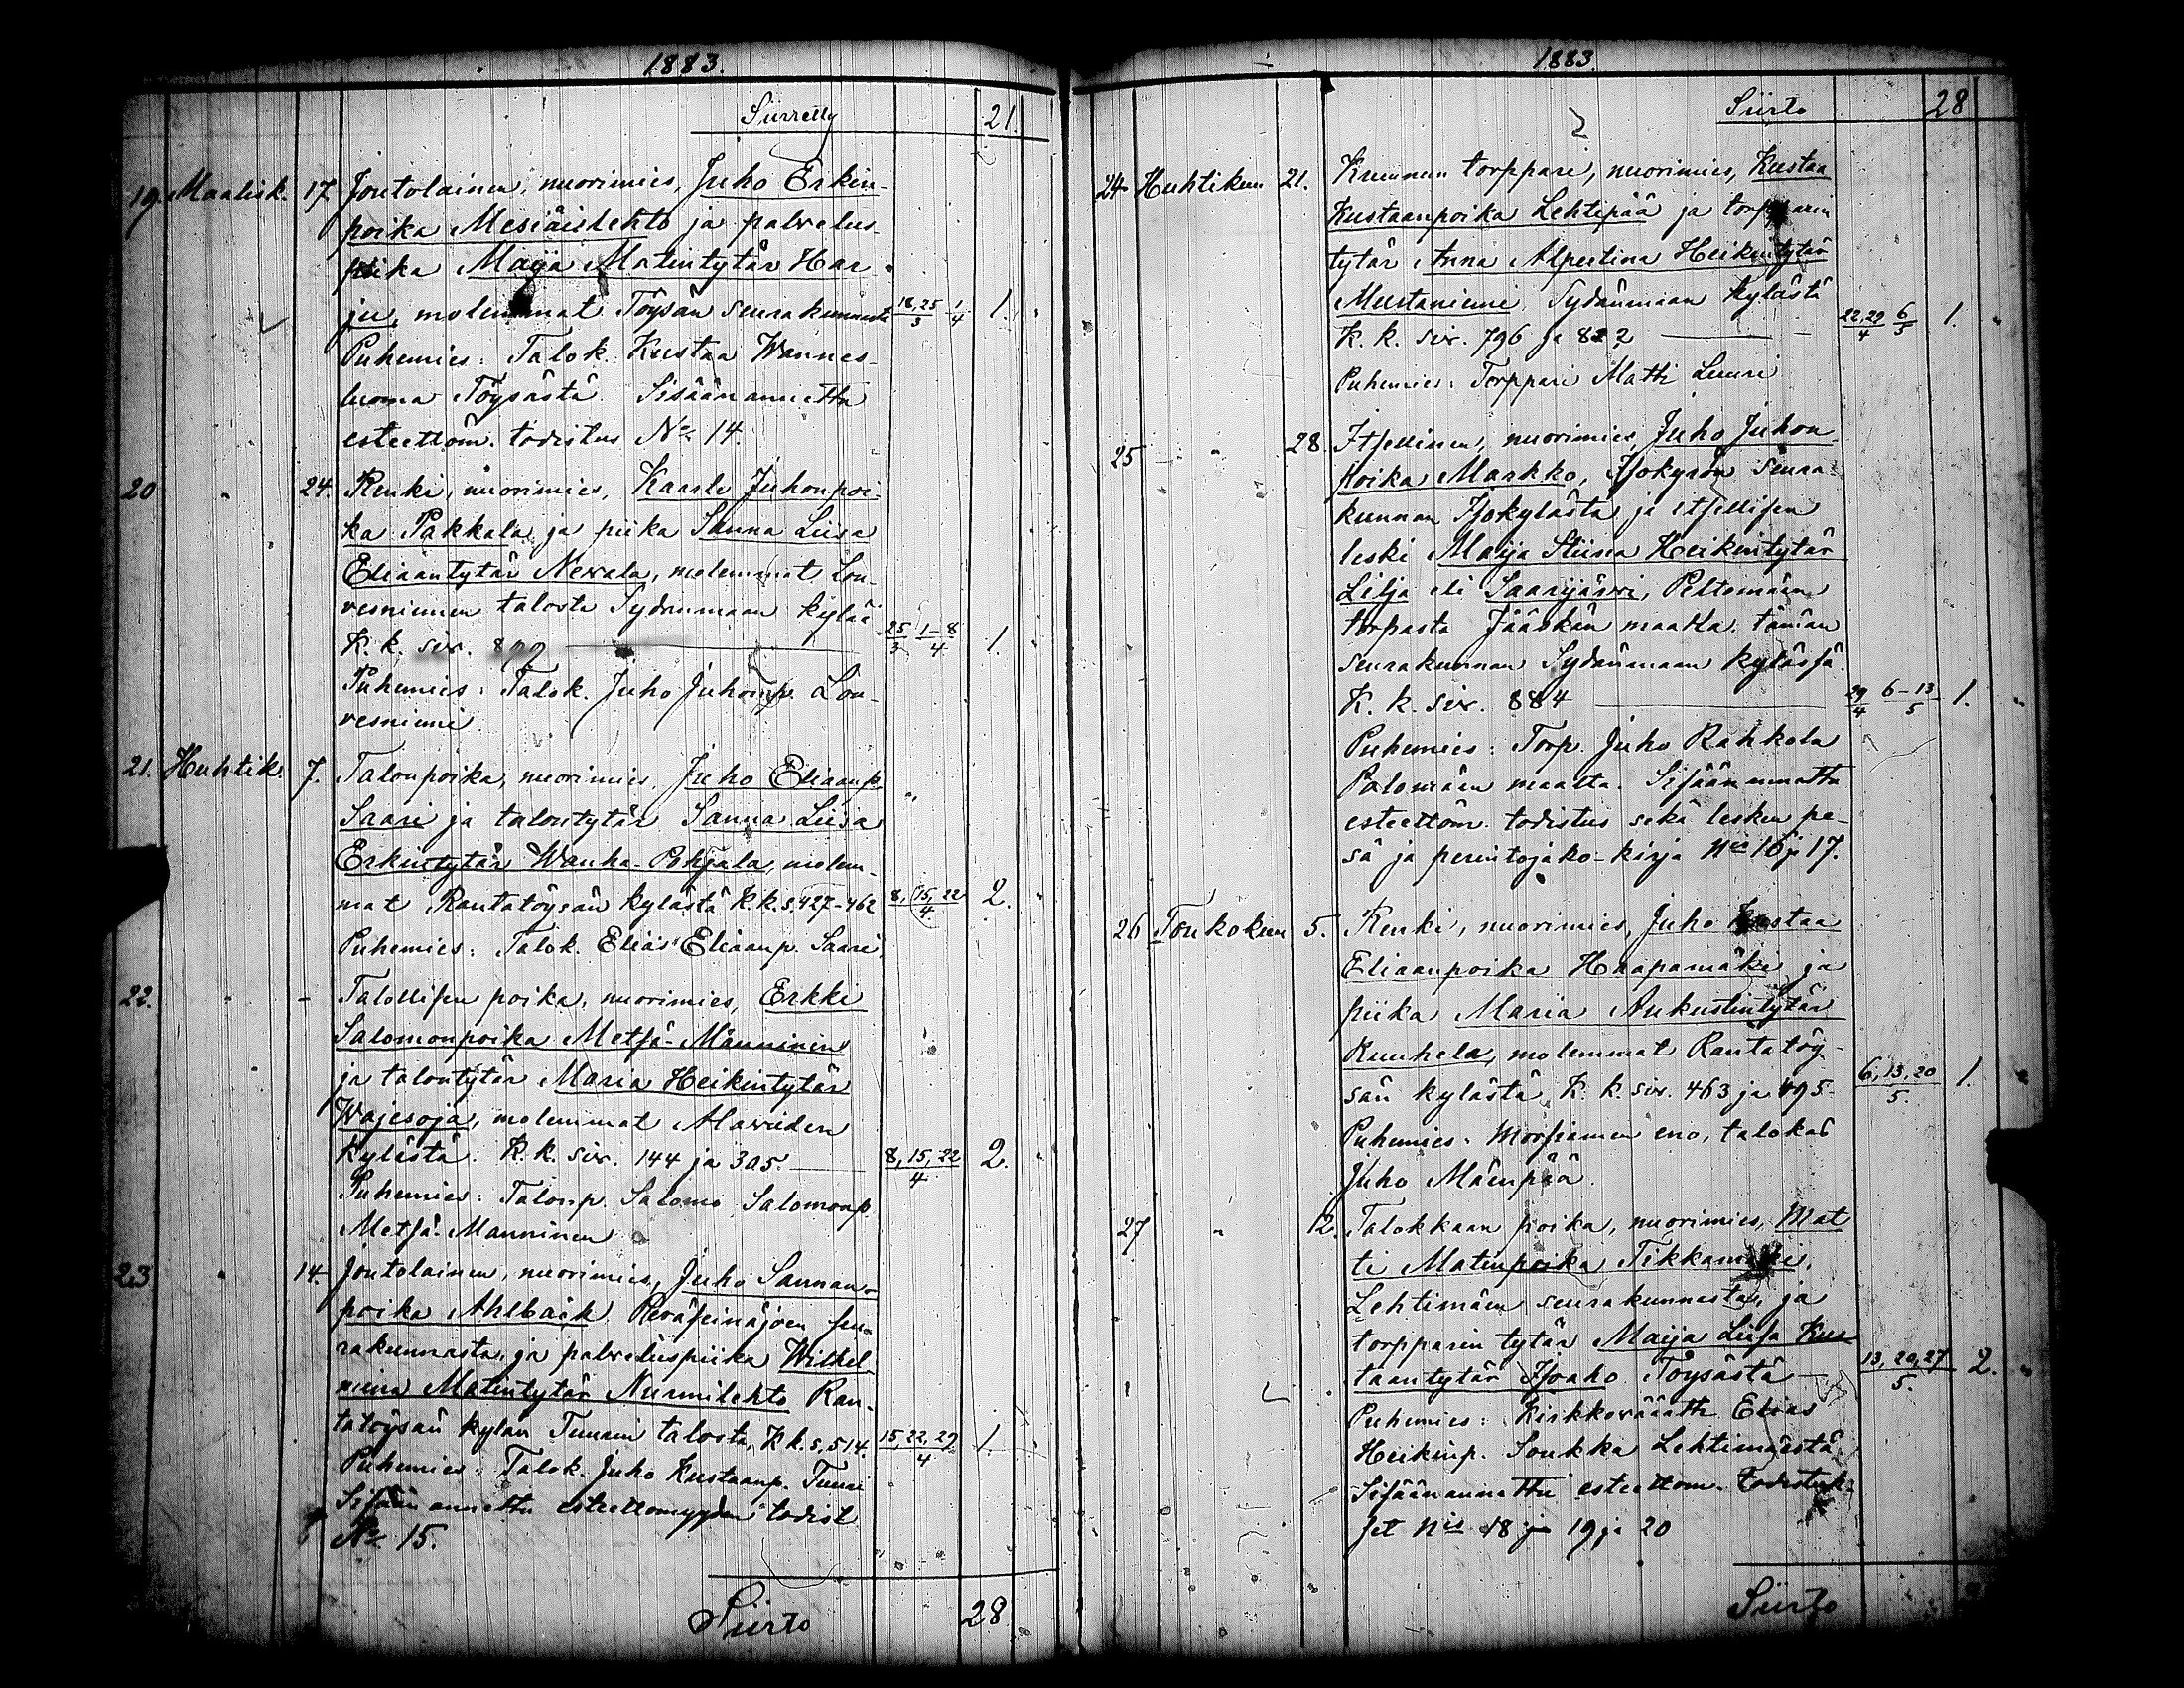 1883.
Siirretty 21.
19. Maalisk. 17 Joutolainen, nuorimies, Juho Erkin-
poika Mesiäislehto ja palvelus-
piika Maija Matintytär Har-
ju, molemmat Töysän seurakunnasta 18,25/3 1/4 1.
Puhemies: Talok. Kustaa Wannes-
luoma Töysästä. Sisäänannettu
esteettöm. todistus No 14.
20 " 24. Renki, nuorimies, Kaarle Juhonpoi-
ka Pakkala ja piika Sanna Liisa
Eliaantytär Newala, molemmat Lou-
vesniemen talosta Sydänmaan kylää
K. k. siv. 25/3 1-8/4 1.
Puhemies: Talok. Juho Juhonp. Lou-
vesniemi
21. Huhtik. 7. Talonpoika, nuorimies, Juho Eliaanp.
Saari ja talontytär Sanna Liisa
Erkintytär Wanha-Pohjala, molem-
mat Rantatöysän kylästä K.k.s. 427-462 8, 15, 22/4 2.
Puhemies: Talok. Elias Eliaanp. Saari,
22. " - Talollisen poika, nuorimies, Erkki
Salomonpoika Metsä-Männinen
ja talontytär Maria Heikintytär
Wajesoja, molemmat Alaviiden
kylästä. K. k. siv. 144 ja 305. 8, 15, 22/4 2.
Puhemies: Talonp. Salomo Salomonp.
Metsä-Manninen
23 " 14. Joutolainen, nuorimies, Juho Sannan-
poika Ahlbäck Peräseinäjoen seu-
rakunnasta, ja palveluspiika Wilhel-
miina Matintytär Nurmilehto Ran-
tatöysän kylän Tuurin talosta, K k. s. 514. 15, 22, 29/4 1.
Puhemies: Talok. Juho Kustaanp. Tuuri
Sisäänannettu esteettomyyden todist
No 15.
Siirto 28
1883.
Siirto 28
24 Huhtikuu 21. Kruunun torppari, nuorimies, Kustaa
Kustaanpoika Lehtipää ja torpparin
tytär Anna Alpertina Heikintytär
Mustaniemi Sydänmaan kylästä
K. k. siv. 796 ja 822 22,29/4 6/5 1.
Puhemies: Torppari Matti Luuri
25 " 28. Itsellinen, nuorimies, Juho Juhon-
poika Markko, Isokyrön seura-
kunnan Isokylästä ja itsellisen
leski Maija Stiina Heikintytär
Lilja eli Saarijärvi, Peltomäen
torpasta Jääskän maalla tämän
seurakunnan Sydänmaan kylässä.
K. k. siv. 884 29/4 6-13/5 1.
Puhemies: Torp. Juho Rahkola
Palomäen maalta. Sisäänannettu
esteettöm. todistus sekä lesken pe-
sä ja perintojako-kirja Nis 16 ja 17.
26 Toukokuu 5. Renki, nuorimies, Juho Kustaa
Eliaanpoika Haapamäki ja
piika Maria Aukustintytär
Ruuhela, molemmat Rantatöy-
sän kylästä K. k. siv. 463 ja 495. 6, 13, 20/5 1.
Puhemies: Morsiamen eno, talokas
Juho Mäenpää.
27 " 12. Talokkaan poika, nuorimies, Mat
ti Matinpoika Tikkamäki,
Lehtimäen seurakunnasta, ja
torpparin tytär Maija Liisa Kus-
taantytär Isoaho Töysästä 13, 20, 27/5. 2.
Puhemies: Kirkkoväärtti Elias
Heikinp. Soukka Lehtimäestä.
Sisäänannettu esteettom. todistuk-
set Nis 18 ja 19 ja 20
Siirto